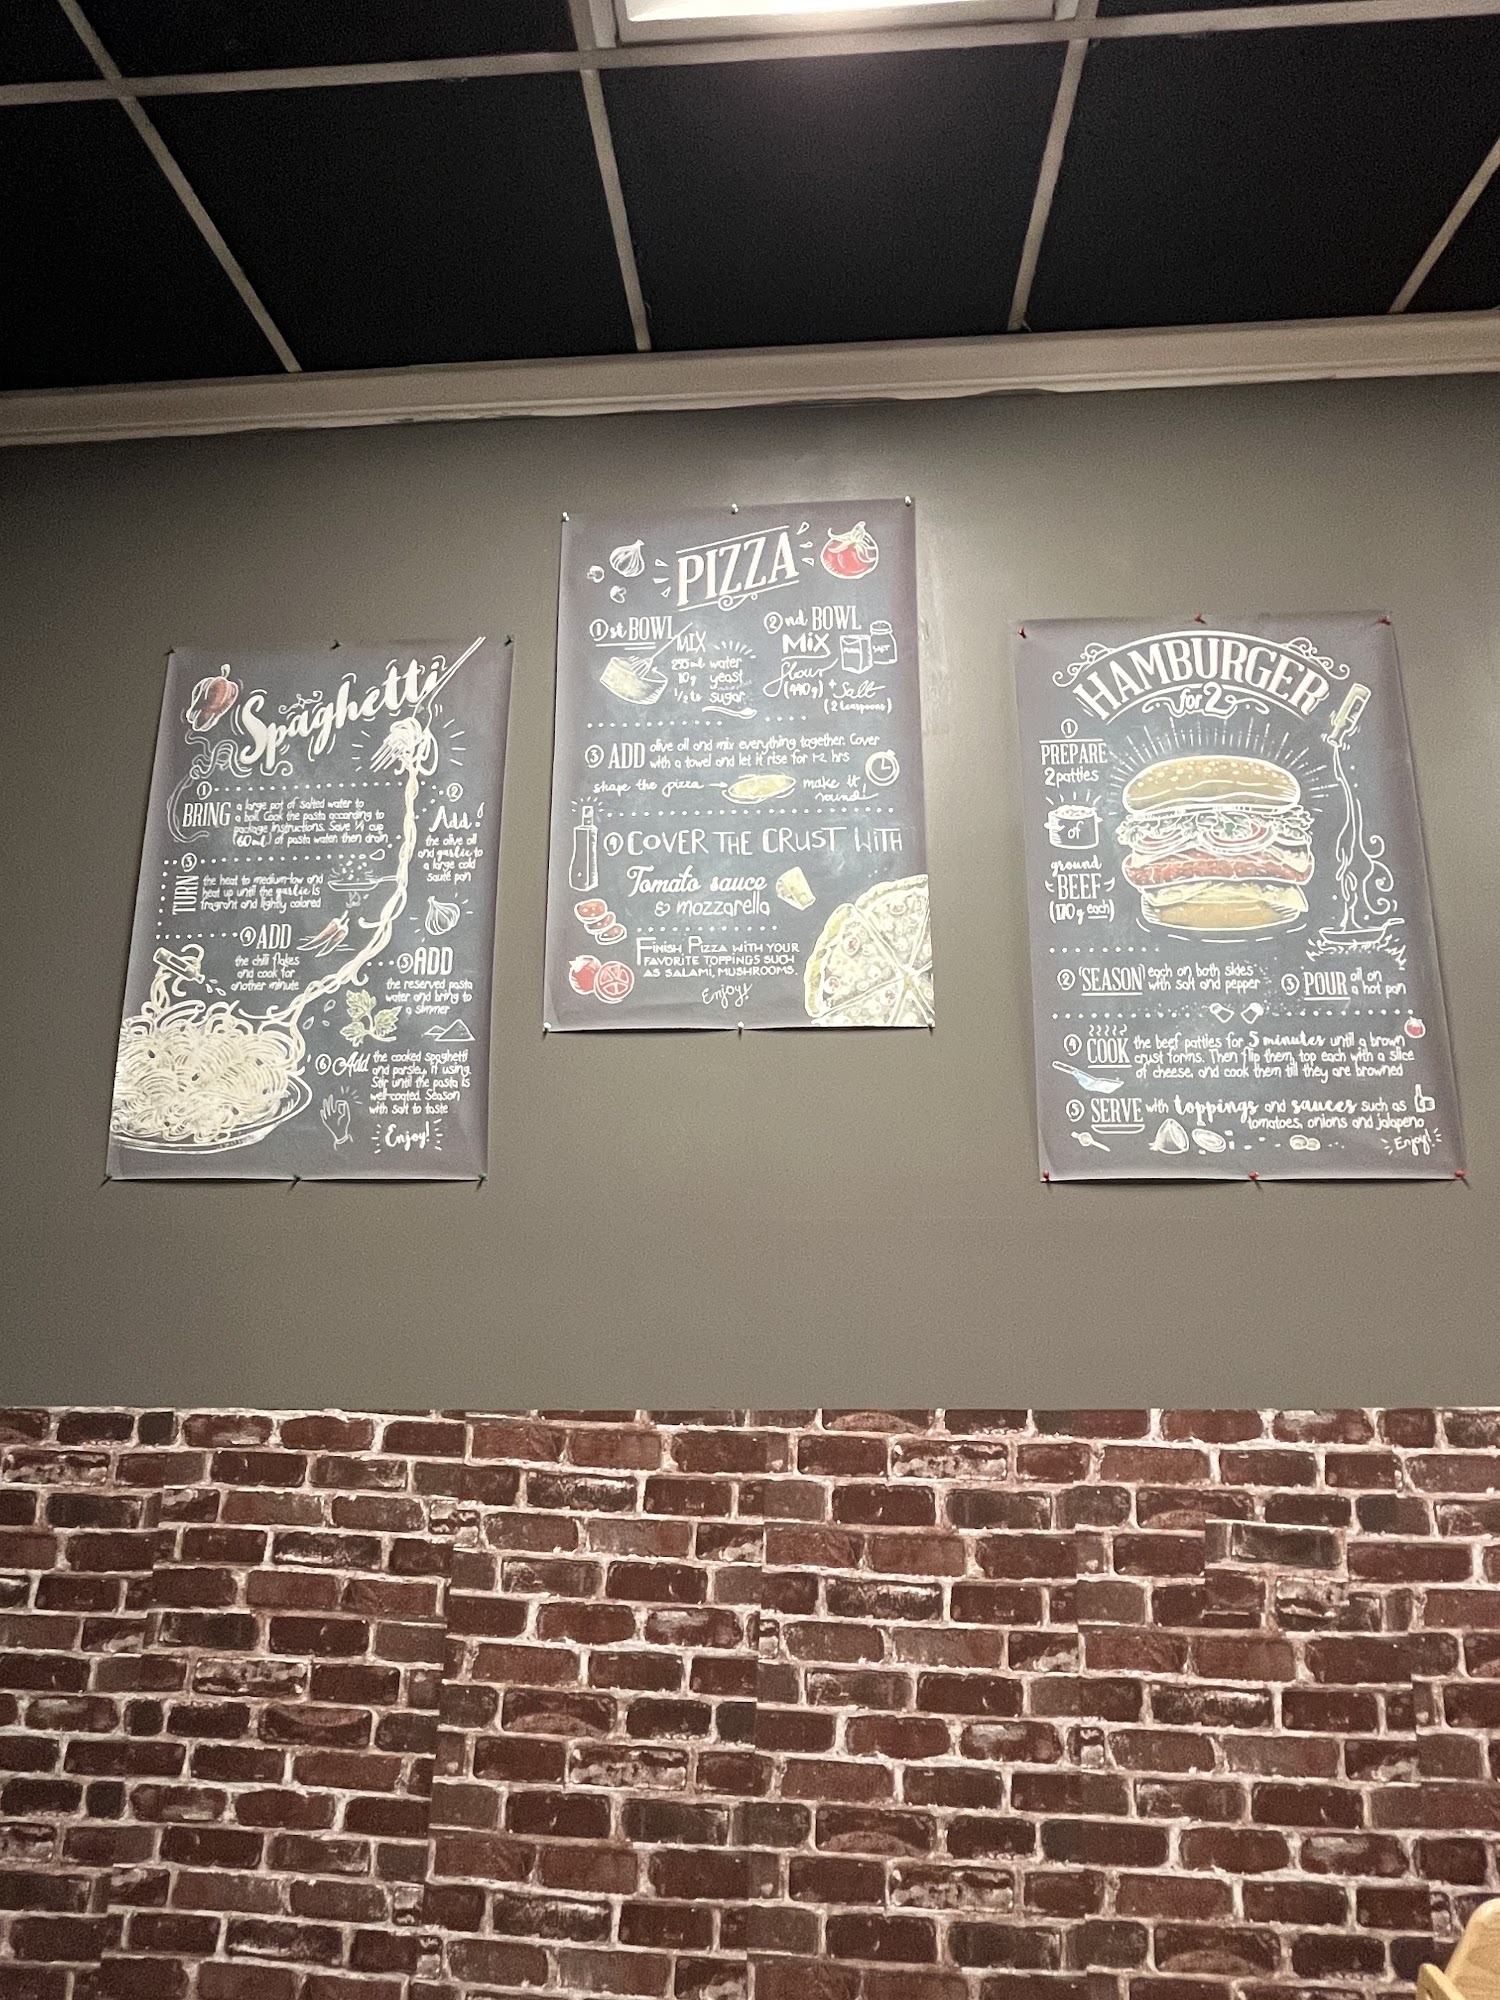 Spaghetti
1
BRING
a large pot of salted water to
a boil. Cook the pasta according to
package instructions. Save 1/4 cup
(60 ml) of pasta water, then drain
2
Add
the olive oil
and garlic to
a large cold
sauté pan
3
TURN
the heat to medium-low and
heat up until the garlic is
fragrant and lightly colored
4 ADD
the chili flakes
and cook for
another minute
5 ADD
the reserved pasta
water and bring to
a simmer
6 Add the cooked spaghetti
and parsley, if using.
Stir until the pasta is
well-coated. Season
with salt to taste
Enjoy!
PIZZA
1st BOWL
MIX
water
10g yeast
1/2 ts sugar
2nd BOWL
MIX
flour
SALT
(440g) + Salt
(2 teaspoons)
3 ADD olive oil and mix everything together. Cover
with a towel and let it rise for 1-2 hrs
shape the pizza → make it
round!
4 COVER THE CRUST WITH
Tomato sauce
& mozzarella
FINISH PIZZA WITH YOUR
FAVORITE TOPPINGS SUCH
AS SALAMI, MUSHROOMS.
Enjoy!
HAMBURGER
for 2
1
PREPARE
2 patties
of
ground
BEEF
(170 g each)
2 SEASON each on both sides
with salt and pepper
3 POUR oil on
a hot pan
4 COOK the beef patties for 5 minutes until a brown
crust forms. Then flip them, top each with a slice
of cheese, and cook them till they are browned
5 SERVE with toppings and sauces such as
tomatoes, onions and jalapeno
Enjoy!